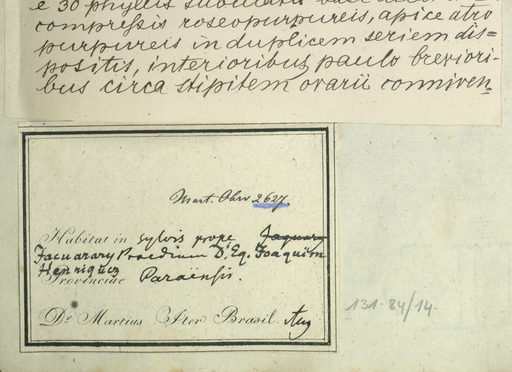 e 30 phyllis subulatis
compressis roseopurpureis, apice atro
purpureis in duplicem seriem dis=
positis, interioribus paulo breviori=
bus circa stipitem ovarii conniven
Mart. Obs. 2627.
Habitat in sylvis prope Jaquary
Jacuarary Praedium D. Eq. Joaquim
Henriquez
Provinciae Paraënsis.
Dr. Martius Iter Brasil. Aug
131-84/14.